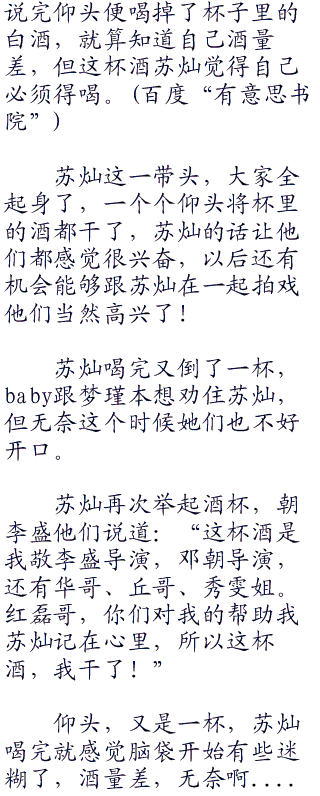 说完仰头便喝掉了杯子里的
白酒，就算知道自己酒量
差，但这杯酒苏灿觉得自己
必须得喝。(百度“有意思书
院”)
苏灿这一带头，大家全
起身了，一个个仰头将杯里
的酒都干了，苏灿的话让他
们都感觉很兴奋，以后还有
机会能够跟苏灿在一起拍戏
他们当然高兴了！
苏灿喝完又倒了一杯，
baby跟梦瑾本想劝住苏灿，
但无奈这个时候她们也不好
开口。
苏灿再次举起酒杯，朝
李盛他们说道：“这杯酒是
我敬李盛导演，邓朝导演，
还有华哥、丘哥、秀雯姐。
红磊哥，你们对我的帮助我
苏灿记在心里，所以这杯
酒，我干了！”
仰头，又是一杯，苏灿
喝完就感觉脑袋开始有些迷
糊了，酒量差，无奈啊....